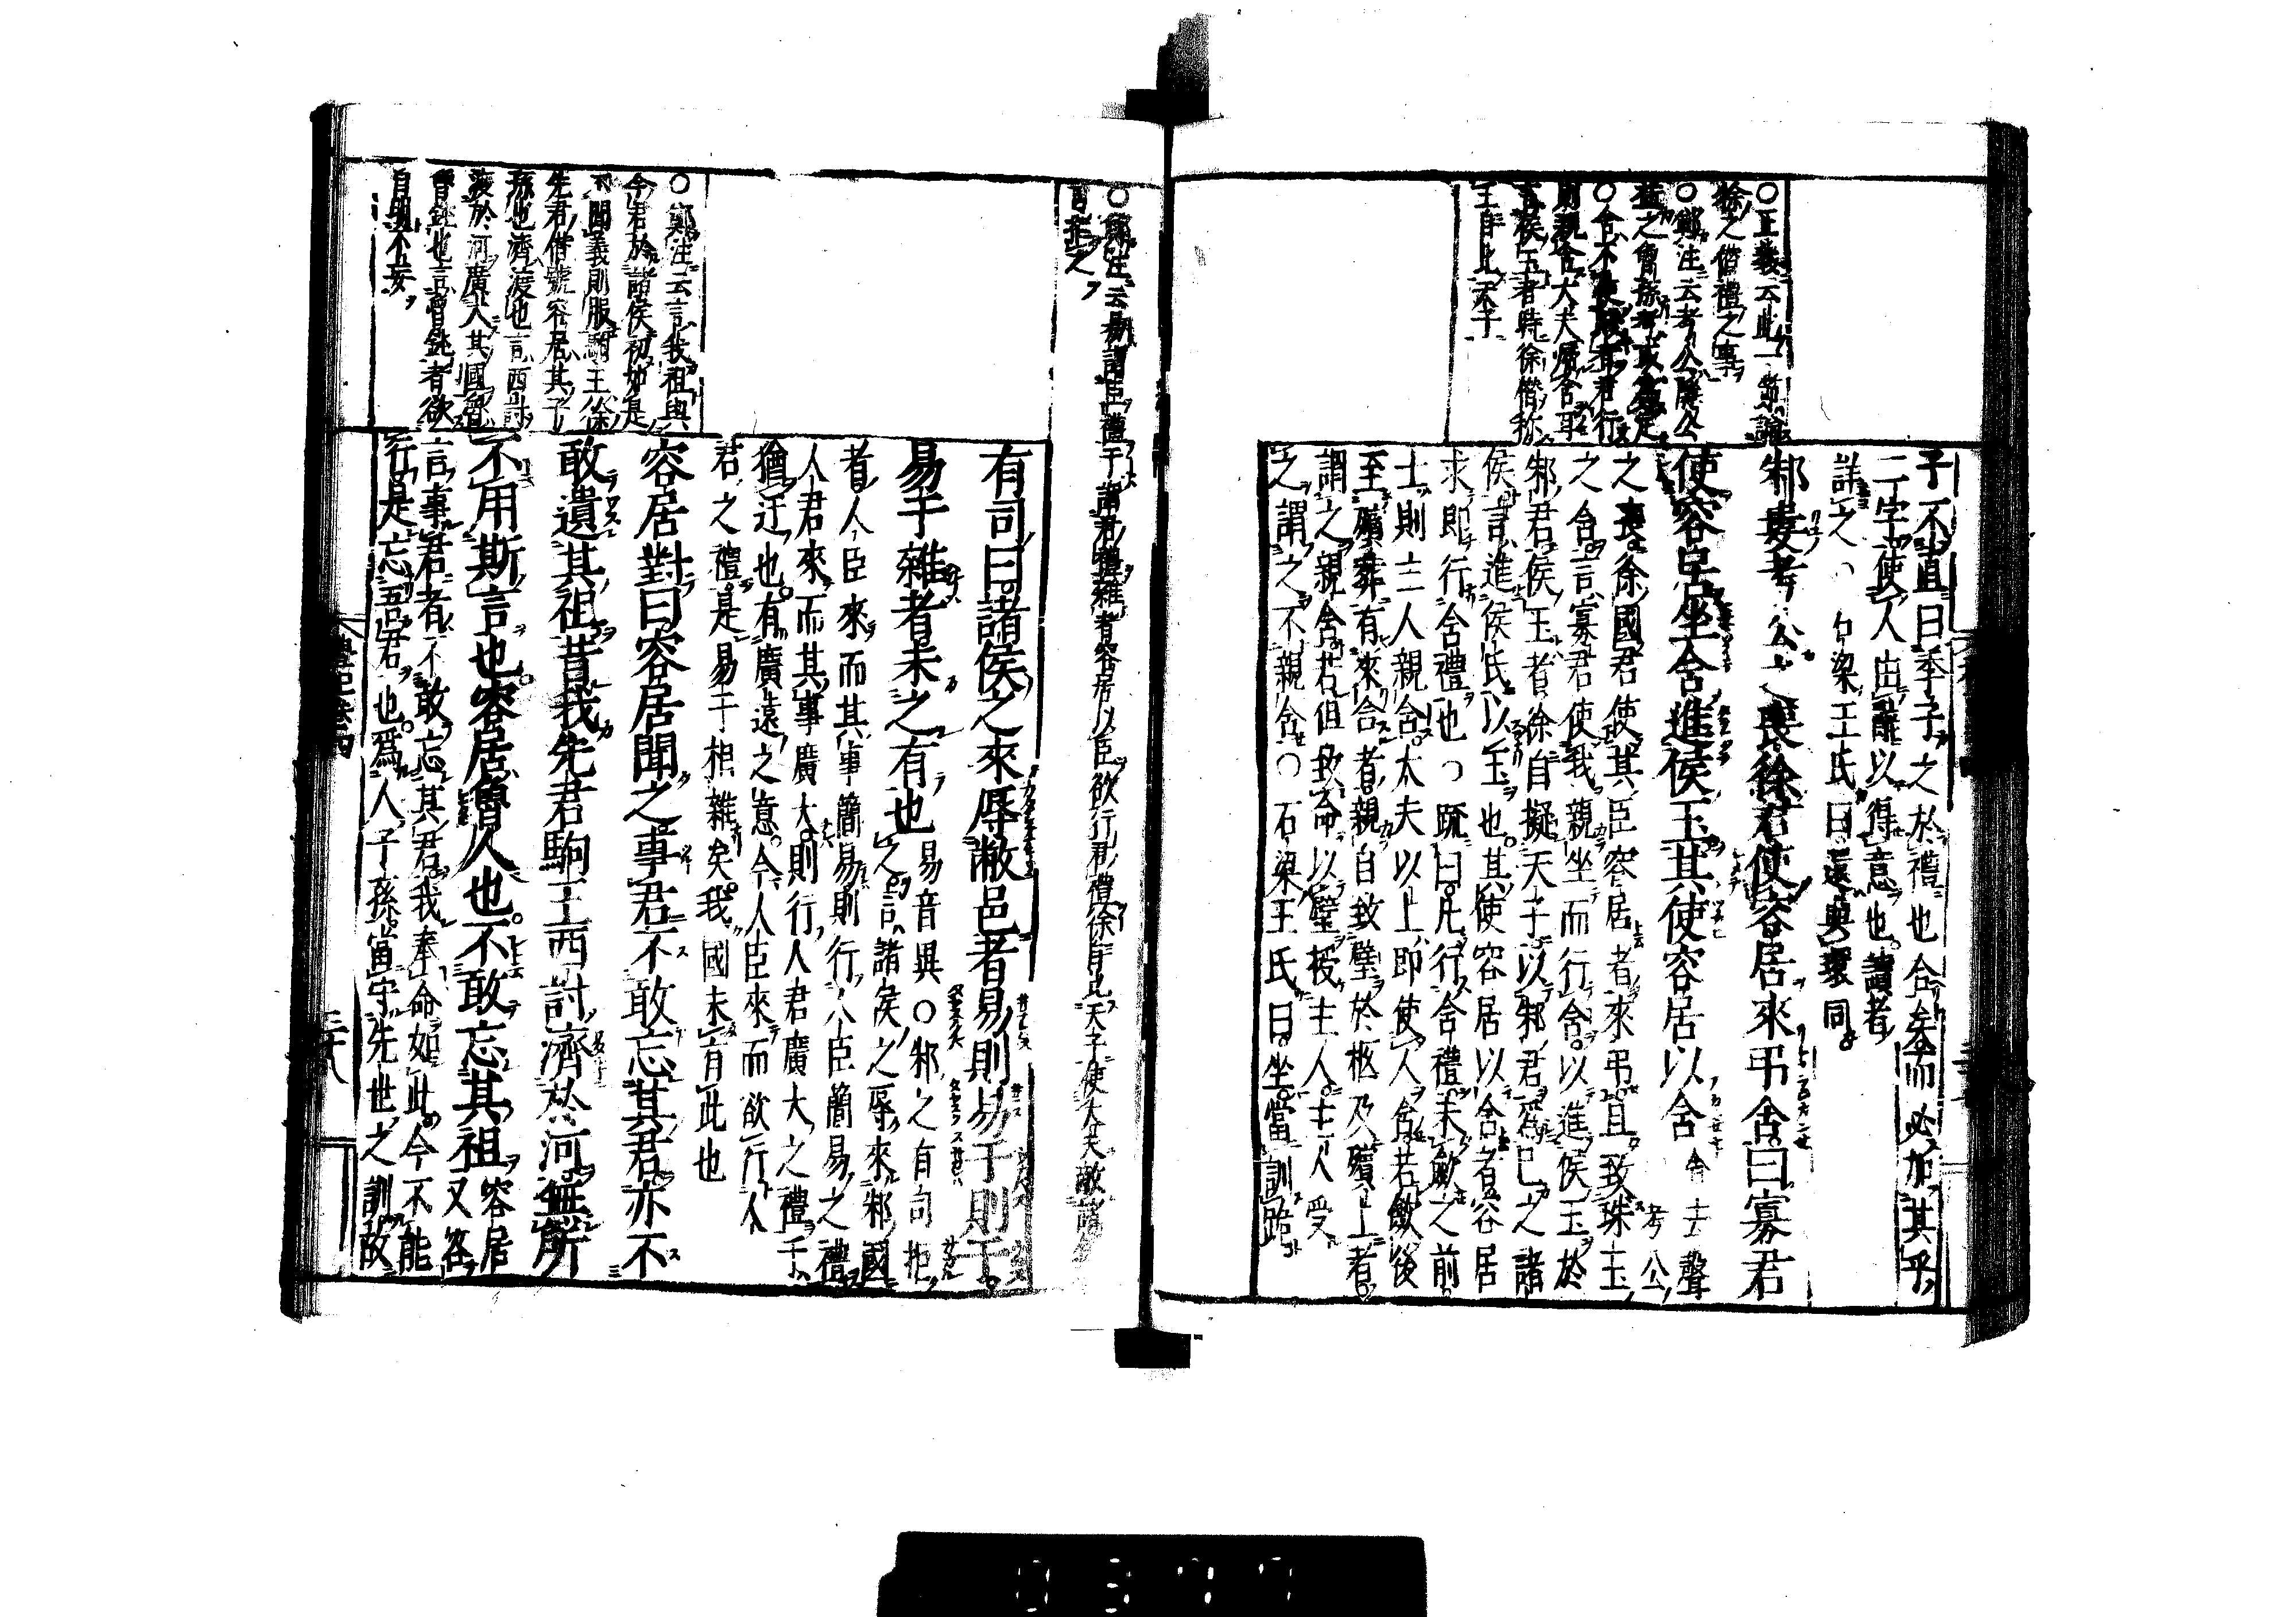 ○正義云此一節論
徐之僭禮之事
○鄭注云考公隱公
益之曾孫考或爲定
○含不使賤者君行
則親含大夫歸含耳
言侯玉者時徐僭称
王自比天子
子不直曰季子之於禮也合矣而必加其乎
二字使人由辭以得意也讀者
詳之○石梁王氏曰還與環同
邾婁考公之喪徐君使容居來弔含曰寡君
使容居坐含進侯玉其使容居以含
含去聲考公
之喪徐國君使其臣容居者來弔且致珠玉
之含言寡君使我親坐而行含以進侯玉於
邾君侯玉者徐自擬天子以邾君爲已之諸
侯言進侯氏以玉也其使容居以含者容居
求即行含禮也○疏曰凡行含禮未斂之前
士則主人親含大夫以上即使人含若斂後
至殯葬有來含者親自致璧於柩及殯上者
謂之親含若但致命以璧授主人主人受
之謂之不親含○石梁王氏曰坐當訓跪
○鄭注云易謂臣禮于謂君禮雜者容居以臣欲行君禮徐自比天子使大夫敵諸
言非之
有司曰諸侯之來辱敝邑者易則易于則于
易于雜者未之有也
易音異○邾之有司拒
之言諸侯之辱來邾國
者人臣來而其事簡易則行人臣簡易之禮
人君來而其事廣大則行人君廣大之禮于
猶迂也有廣遠之意今人臣來而欲行人
君之禮是易于相雜矣我國未有此也
○鄭注云言我祖與
今君於諸侯初如是
不聞義則服駒王徐
先君僭號容居其子
孫也濟渡也言西討
渡於河廣大其國魯
魯鈍也言魯鈍者欲
自明不妄
容居對曰容居聞之事君不敢忘其君亦不
敢遺其祖昔我先君駒王西討濟於河無所
不用斯言也容居魯人也不敢忘其祖
容居又答
言事君者不敢忘其君我奉命如此今不能
行是忘吾君也爲人子孫當守先世之訓故
禮記卷四
三十八